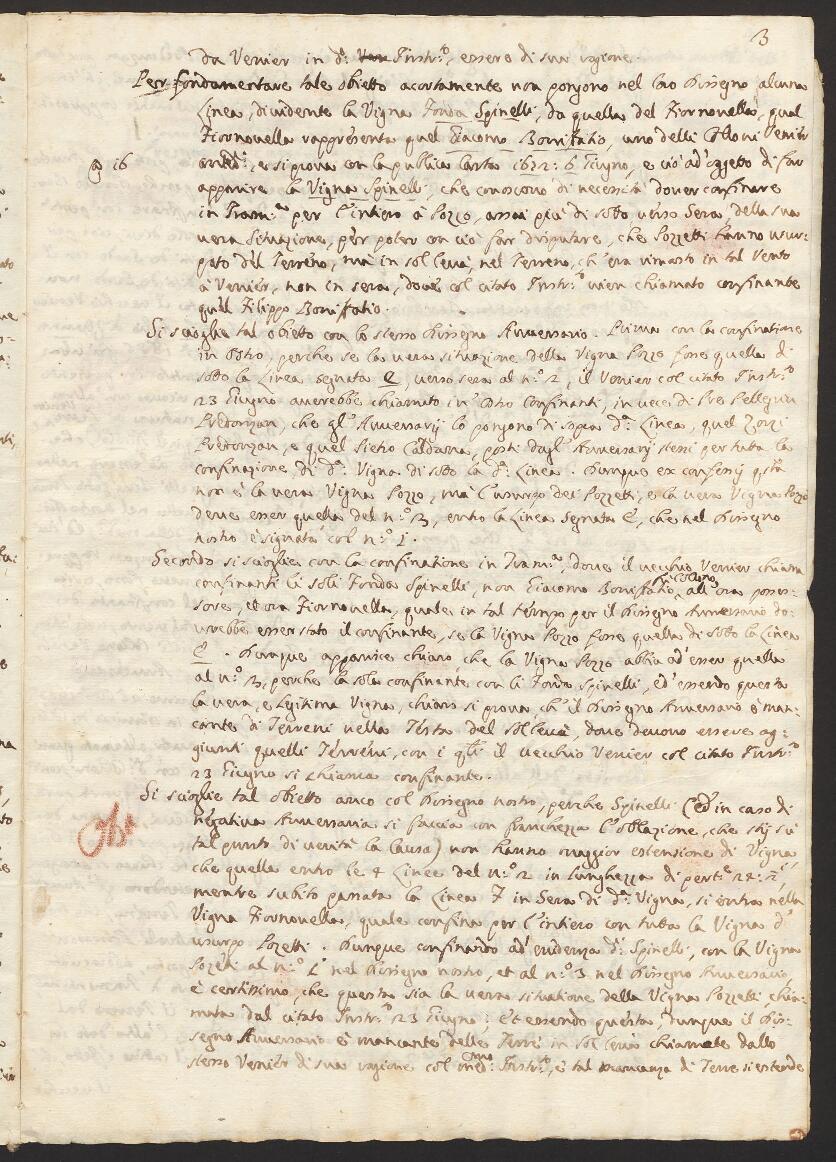 3
da Venier in d:º Instr:º, essere di sua ragione.
Per fondamentare tale obietto acortamente non pongono nel loro dissegno alcuna
Linea, dividente la Vigna Fonda Spinelli, da quella del Fiornovella, qual
Fiornovella rappresenta quel Giacomo Bonifatio, uno delli Colloni Venier
e si prova con la publica Carta 1622: 6 Giugno, e ciò ad'oggetto di far
@ 16
apparire la Vigna Spinelli, che conoscono di necessità dover confinare
in Tram:ª per l'intiero à Pozzo, assai più di sotto verso Sera, della sua
vera situazione, per poter con ciò far disputare, che Pozzetti hanno usur:
pato del Terreno, mà in sol levà, nel Terreno, ch'era rimasto in tal Vento
à Venier, non in sera, dove col citato Instr:º vien chiamato confinante
quel Filippo Bonifatio.
Si scioglie tal obietto con lo stesso dissegno Avversario. Prima con la confinatione
in Ostro, perche se la vera situazione della Vigna Pozzo fosse quella di
sotto la Linea segnata E, verso sera al n:º 2, il Venier col citato Instr:º
23 Giugno averebbe chiamato in Ostro confinanti, in vece di Pre Pellegrin
Predonzan, che gl'Avversarij lo pongono di sopra d:ª Linea, quel Zorzi
Predonzan, e quel Pietro Caldana, posti dagl'Avversarij stessi per tutta la
confinazione di d:ª Vigna di sotto la d:ª Linea. Dunque ex confessis q:sta
non è la vera Vigna Pozzo, mà l'usurpo dei Pozzetti, e la vera Vigna Pozzo
deve esser quella del n:º 3, entro la Linea segnata E, che nel dissegno
nostro è signata col n:º 1.
Secondo si scioglie con la confinazione in Tram:ª, dove il vecchio Venier chiama
confinanti li soli Fonda Spinelli, non Giacomo Bonifatio, all'ora posses:
sore, et ora Fiornovella, quale in tal tempo per il dissegno Avversario do:
vrebbe esser stato il confinante, se la Vigna Pozzo fosse quella di sotto la Linea
E. Dunque apparisce chiaro, che la Vigna Pozzo abbia ad'esser quella
al n:º 3, perche la sola confinante con li Fonda Spinelli, ed'essendo questa
la vera, e legitima Vigna, chiaro si prova ch'il dissegno Avversario è man:
cante di Terreni nella Testa del Sol levà, dove devono essere ag:
giunti quelli Terreni, con i q:li il vecchio Venier col citato Instr:º
23 Giugno si chiama confinante.
Si scioglie tal obietto anco col dissegno nostro, perche Spinelli (ed'in caso di
negativa Avversaria si faccia con franchezza l'oblazione, che stij sù
tal punto di verità la Causa) non hanno maggior estensione di Vigna,
che quella entro le 4 Linee del n:º 2 in lunghezza di pert:e 24:
mentre subito passata la Linea F in Sera di d:ª Vigna, si entra nella
Vigna Fiornovella, quale confina per l'intiero con tutta la Vigna d'
usurpo Pozetti. Dunque confinando ad'evidenza d:i Spinelli, con la Vigna
Pozetti al n:º 1 nel dissegno nostro, et al n:º 3 nel dissegno Avversario,
è certissimo, che questa sia la vera situatione della Vigna Pozzetti, chia:
mata dal citato Instr:º 23 Giugno; et essendo questa, dunque il dis:
segno Avversario è mancante delle Terre in sol levà chiamate dallo
stesso Venier di sua ragione col med:mo Instr:to, e tal mancanza di Terre si estende